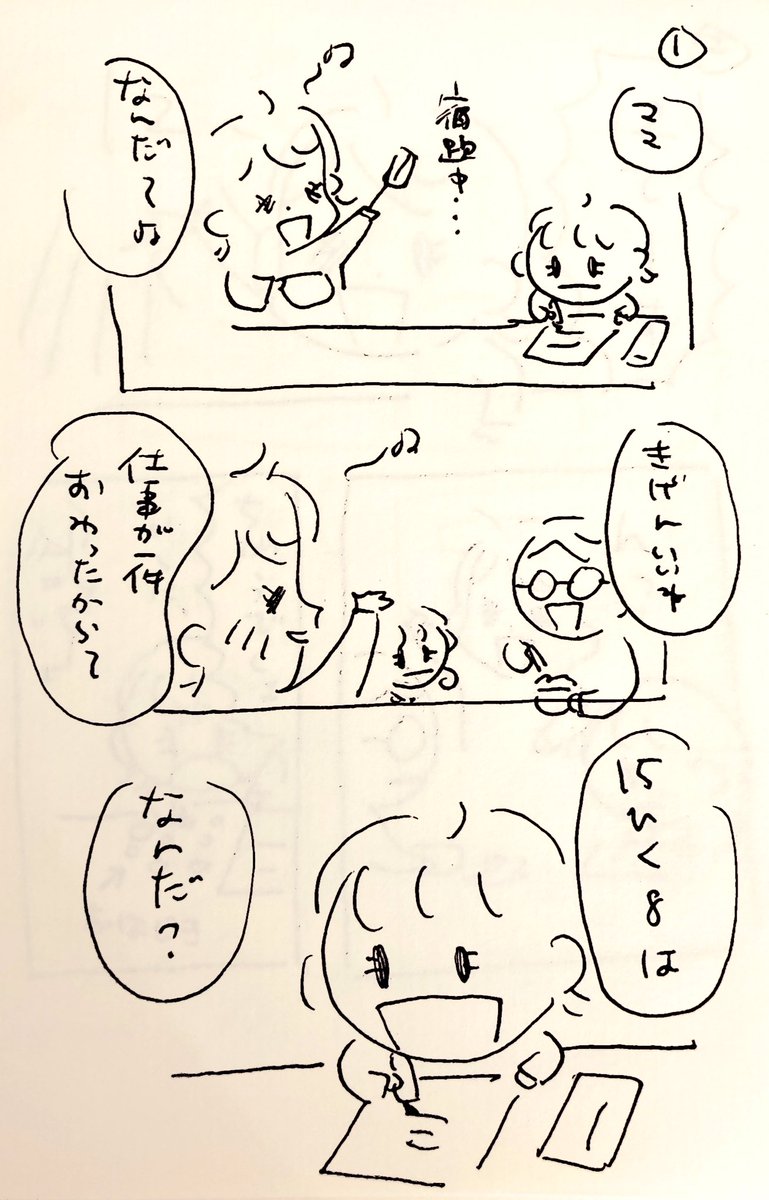 ①
ママ
宿題中...
なんだい♪
きげんいいね
仕事が一件
おわったからね
15ひく8は
なんだ?